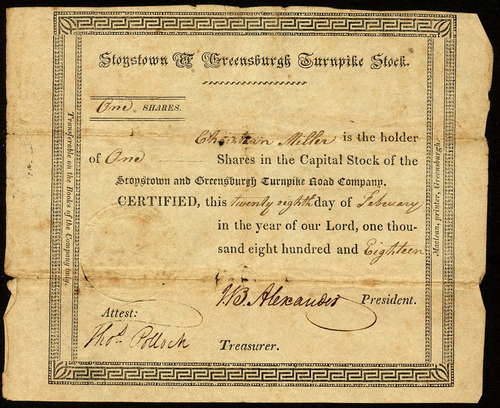 Stoystown & Greensburgh Turnpike Stock.
One SHARES.
Christian Miller is the holder
of One Shares in the Capital Stock of the
Stoystown and Greensburgh Turnpike Road Company.
CERTIFIED, this twenty eighth day of February
in the year of our Lord, one thou-
sand eight hundred and Eighteen
WB. Alexander President.
Attest:
Thos. Pollock Treasurer.
Transferrable on the Books of the Company only.
Maclean, printer, Greensburgh.